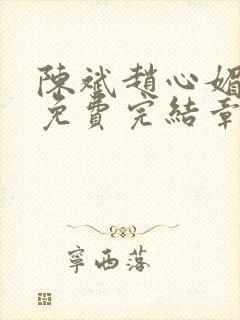 陳斌趙心媚
免費完結章
寧西落